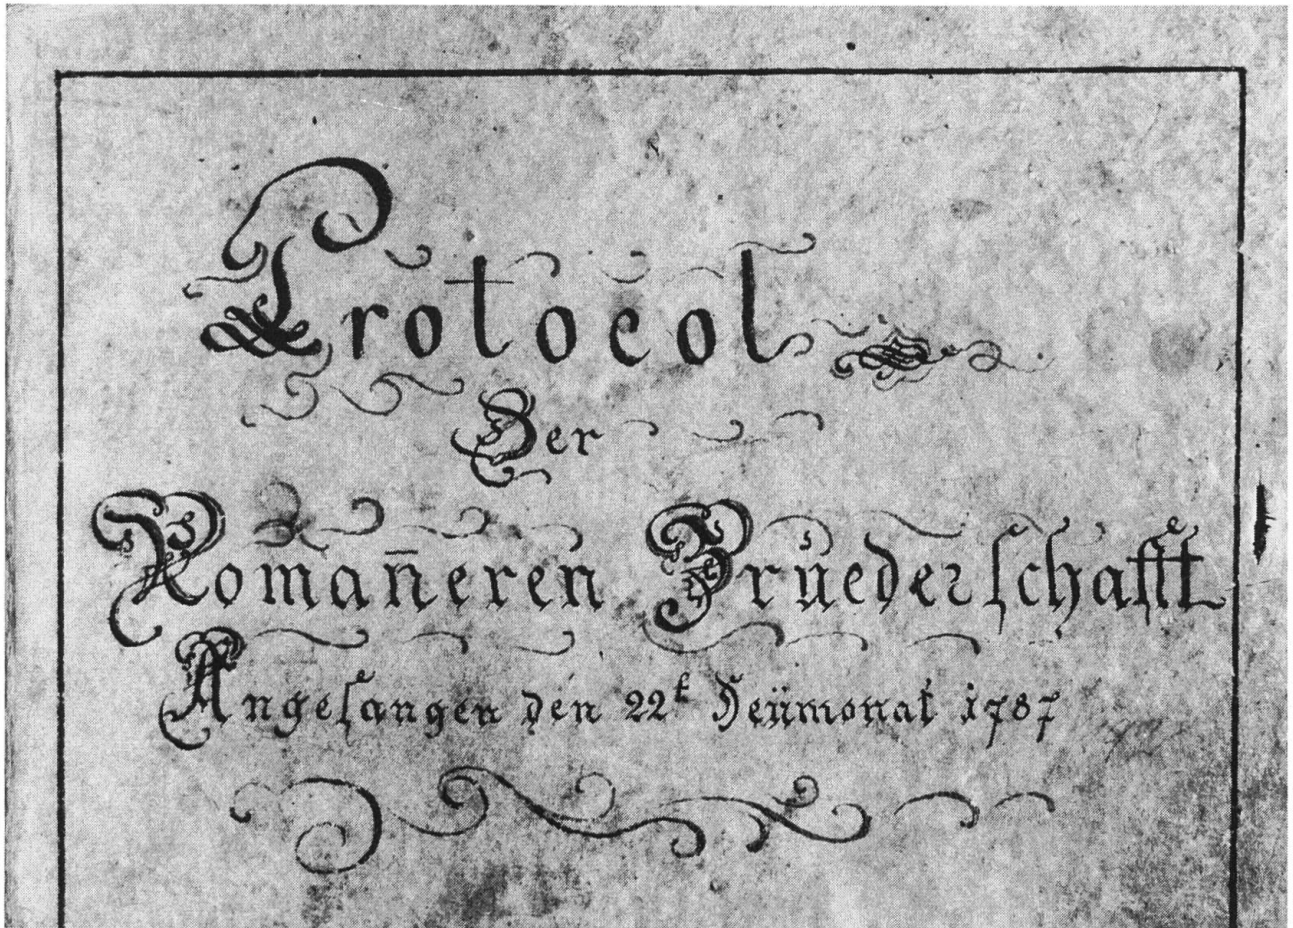 Protocol
Der
Roman̄eren Brůederſchafft
Angefangen den 22ᵗ Heümonat 1787